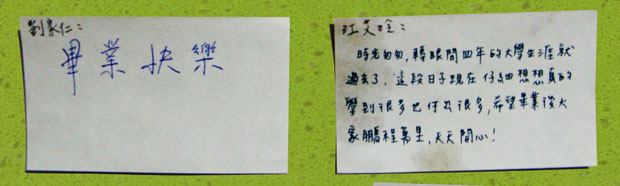 劉家仁：
畢業快樂
江文瑄：
時光匆匆，轉眼間四年的大學生涯就
過去了，這段日子現在仔細想想真的
學到很多也付出很多，希望畢業後大
家鵬程萬里，天天開心！